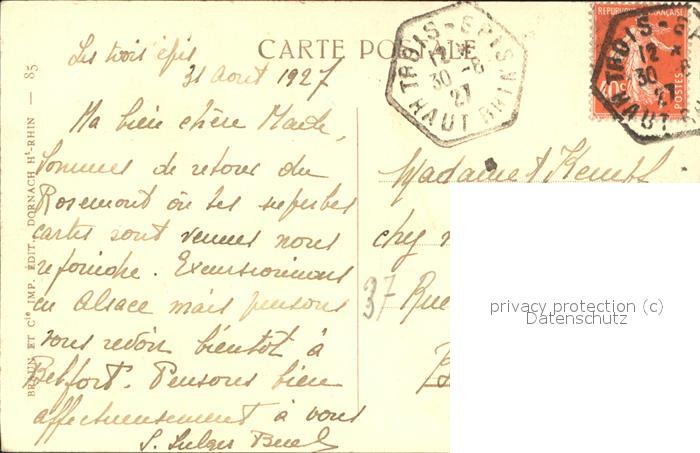 CARTE POSTALE
Les trois épis
31 Aout 1927
Ma bien chère Marthe,
Sommes de retour du
Rosemont où tes superbes
cartes sont venues nous
rejoindre. Excursionnons
en Alsace mais pensons
vous revoir bientôt à
Belfort. Pensons bien
affectueusement à vous
S.
BRAUN ET Cie IMP. ÉDIT. DORNACH Ht-RHIN — 85
TROIS-EPIS
12
30
27
HAUT RHIN
RÉPUBLIQUE FRANÇAISE
POSTES
40c
TROIS-EP
12
30
27
HAUT R
Madame Kempf
chez
37 Rue
privacy protection (c)
Datenschutz